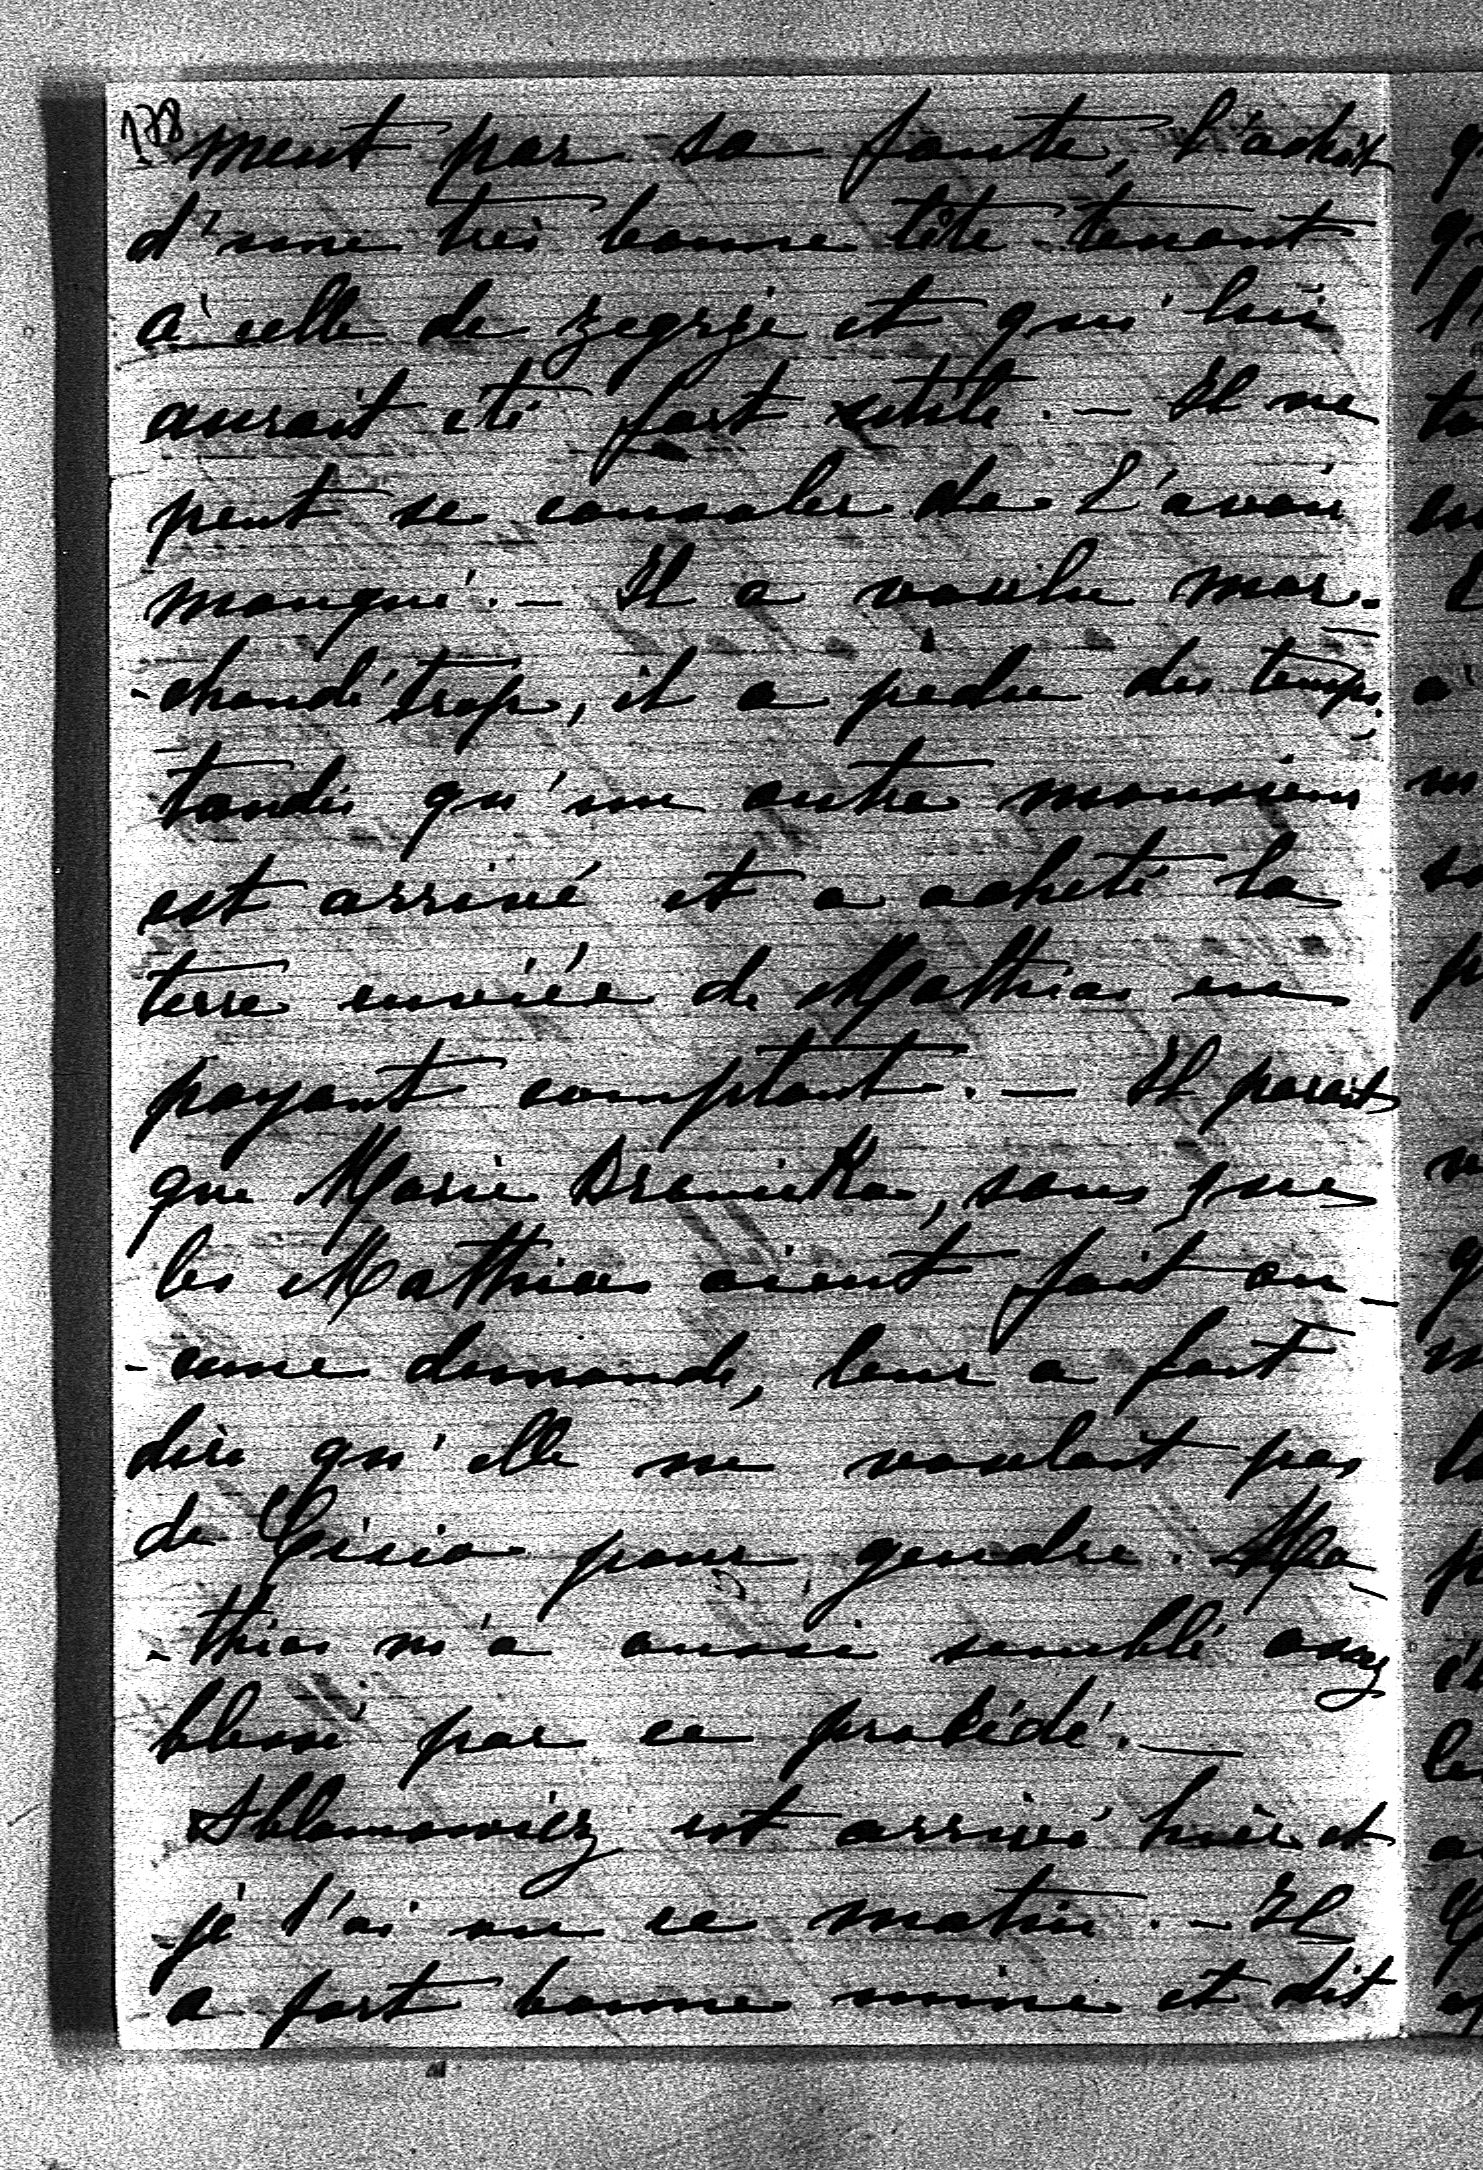 178
ment par sa faute, l'achat
d'une très bonne tête tenant
à celle de Zegrze et qui lui
aurait été fort utile. — Il ne
peut se consoler de l'avoir
manqué. — Il a voulu mar-
-chandé trop, il a perdu du temps,
tandis qu'un autre monsieur
est arrivé et a acheté la
terre enviée de Mathias en
payant comptant. — Il parait
que Marie Branicka, sans que
les Mathias aient fait au-
-cune demande, leur a fait
dire qu'elle ne voulait pas
de Cisia pour gendre. Ma-
-thias m'a aussi semblé assez
blessé par ce procédé. —
est arrivé hier et
je l'ai vu ce matin. — Il
a fort bonne mine et dit